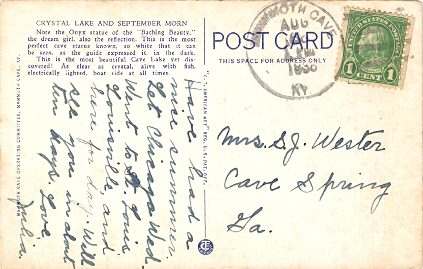 CRYSTAL LAKE AND SEPTEMBER MORN
Note the Onyx statue of the "Bathing Beauty,"
the dream girl, also the reflection. This is the most
perfect cave statue known, so white that it can
be seen, as the guide expressed it, in the dark.
This is the most beautiful Cave Lake yet dis-
covered! As clear as crystal, alive with fish,
electrically lighted, boat ride at all times.
MAMMOTH CAVE OPERATING COMMITTEE, MAMMOTH CAVE, KY.
Have had a
nice summer.
Left Chicago Wed-
Went to St. Louis,
Louisville and
here for day. Will
see you in about
two days. Love
Julia.
POST CARD
THIS SPACE FOR ADDRESS ONLY
MAMMOTH CAVE
AUG
PM
KY.
UNITED STATES POSTAGE
1 CENT 1
Mrs. S. J. Wester
Cave Spring
Ga.